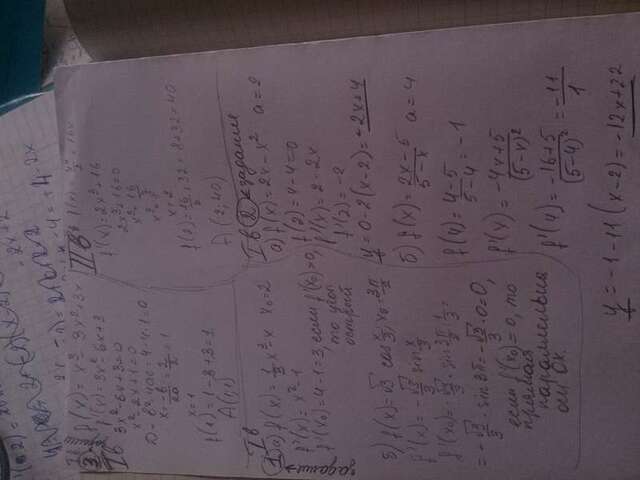 3 задание
I в
f(x) = x³ - 3x² + 3x
f'(x) = 3x² - 6x + 3
3x² - 6x + 3 = 0
x² - 2x + 1 = 0
D = b² - 4ac = 4 - 4·1 = 0
x = -b/2a = 2/2 = 1
x = 1
f(1) = 1 - 3 + 3 = 1
A(1;1)
II в
f'(x) = 2x³ + 16
2x³ + 16 = 0
x³ = 16/2
x³ = 8
x = 2
f(2) = 16/2 + 32 = 8 + 32 = 40
A(2;40)
I в
1 задание
а) f(x) = 1/3 x³ - x x₀ = 2
f'(x) = x² - 1
f'(x₀) = 4 - 1 = 3, если f'(x₀) > 0,
то угол
острый
б) f(x) = √3 cos x/3, x₀ = 3π/2
f'(x) = -√3/3 sin x/3
f'(x₀) = -√3/3 · sin 3π/2 · 1/3 =
= -√3/3 · sin 3π = -√3/3 · 0 = 0,
если f'(x₀) = 0, то
прямая
параллельна
оси Ox.
I в 2 ← задание
а) f(x) = 2x - x² a = 2
f(2) = 4 - 4 = 0
f'(x) = 2 - 2x
f'(2) = -2
y = 0 - 2(x - 2) = -2x + 4
б) f(x) = 2x - 5 / 5 - x a = 4
f(4) = 4 - 5 / 5 - 4 = -1
f'(x) = -4x + 5 / (5 - x)²
f'(4) = -16 + 5 / (5 - 4)² = -11 / 1
y = -1 - 11(x - 2) = -12x + 22